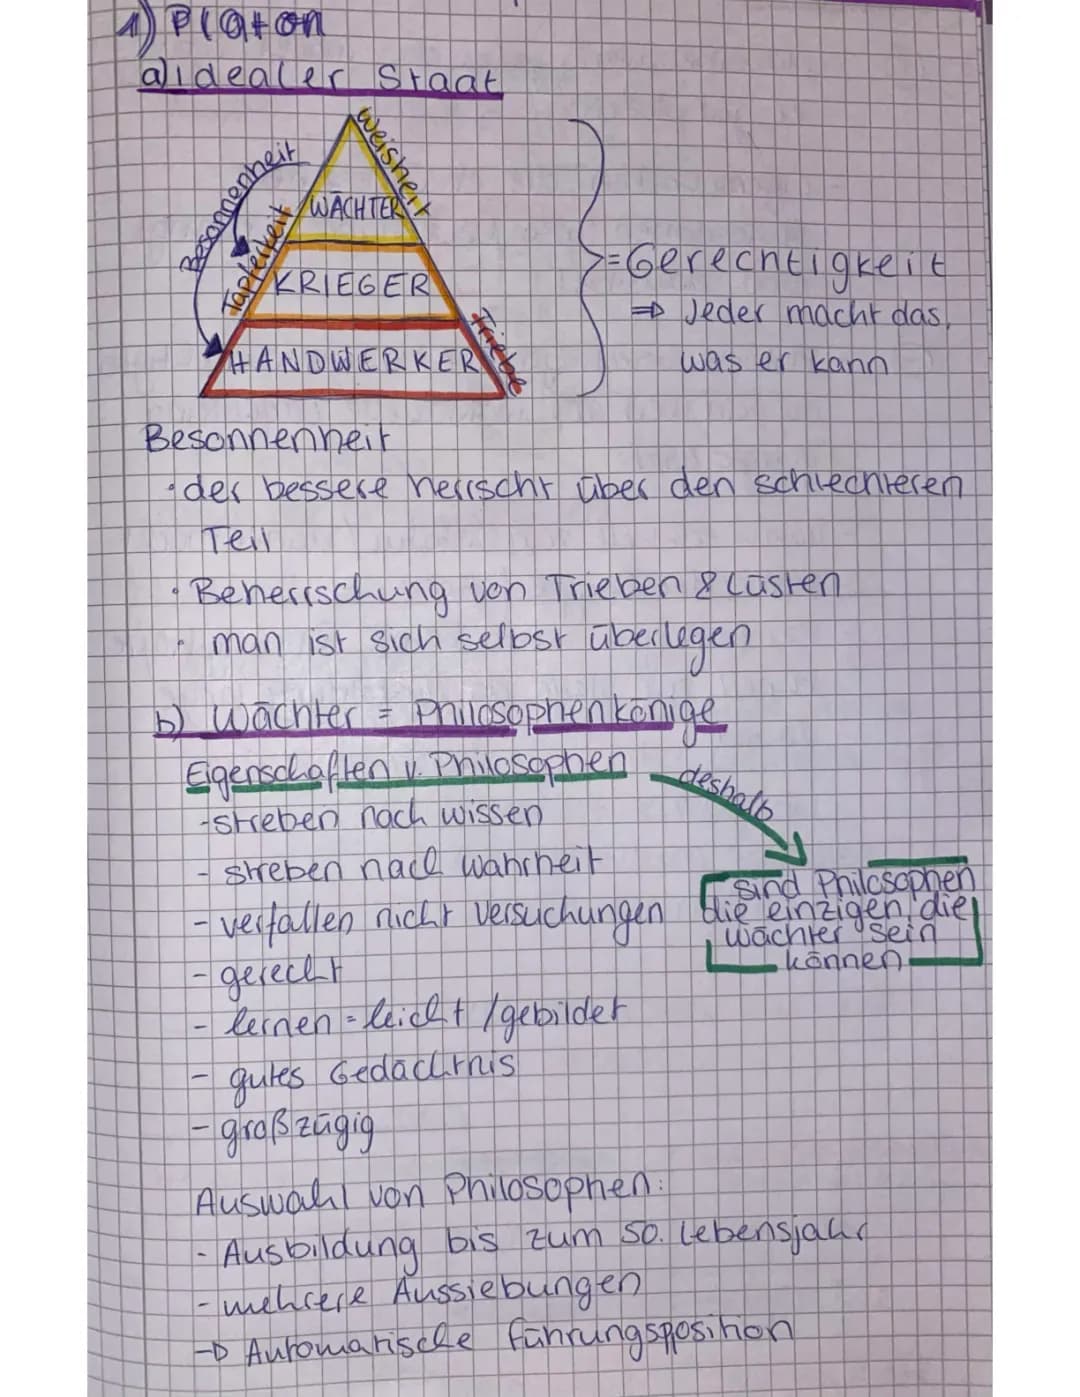 1) Platon
a) idealer Staat
Weisheit
Besonnenheit
Tapferkeit
WÄCHTER
KRIEGER
HANDWERKER
Triebe
= Gerechtigkeit
⇒ Jeder macht das,
was er kann
Besonnenheit
· der bessere herrscht über den schlechteren
Teil
· Beherrschung von Trieben & Lüsten
· man ist sich selbst überlegen
b) Wächter = Philosophenkönige
Eigenschaften v. Philosophen
deshalb
- streben nach wissen
- streben nach wahrheit
- verfallen nicht versuchungen
- gerecht
- lernen = leicht / gebildet
- gutes Gedächtnis
- großzügig
sind Philosophen
die einzigen, die
wächter sein
können
Auswahl von Philosophen:
- Ausbildung bis zum 50. Lebensjahr
- mehrere Aussiebungen
→ Automatische führungsposition